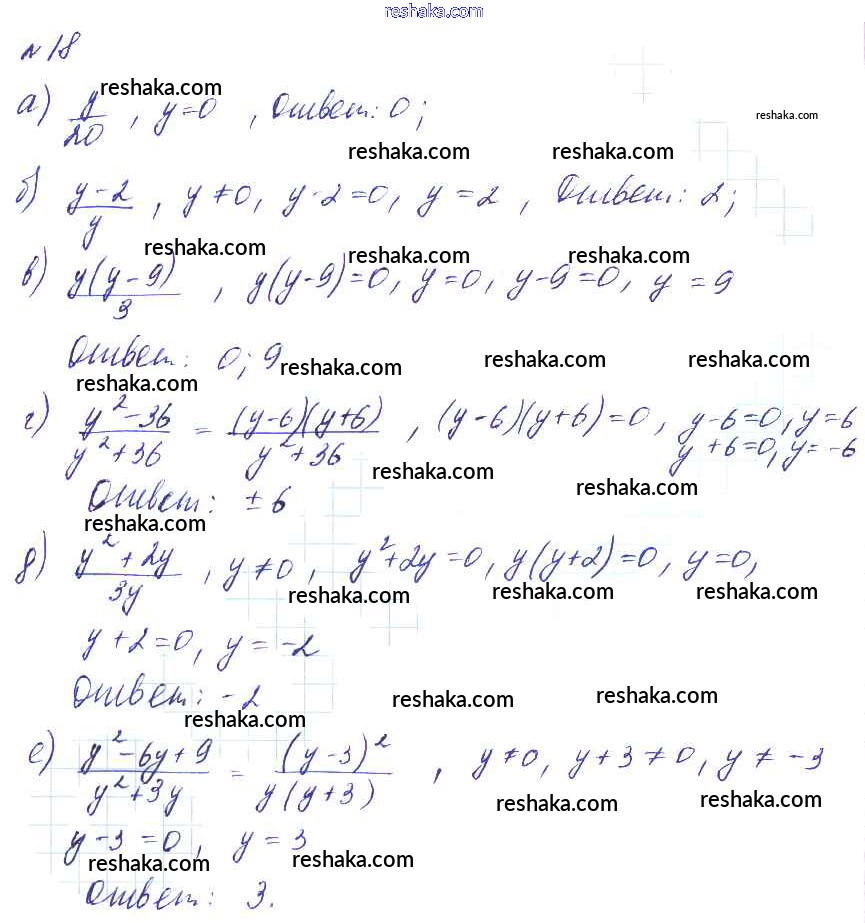 reshaka.com
№ 18
reshaka.com
а) y/20 , y=0 , Ответ: 0;
reshaka.com
reshaka.com reshaka.com
б) y-2/y , y≠0, y-2=0, y=2 , Ответ: 2;
reshaka.com reshaka.com reshaka.com
в) y(y-9)/3 , y(y-9)=0, y=0, y-9=0, y=9
Ответ: 0; 9
reshaka.com reshaka.com reshaka.com
reshaka.com
г) y²-36/y²+36 = (y-6)(y+6)/y²+36 , (y-6)(y+6)=0, y-6=0, y=6
y+6=0, y=-6
reshaka.com reshaka.com
Ответ: ±6
reshaka.com
д) y²+2y/3y , y≠0, y²+2y=0, y(y+2)=0, y=0,
reshaka.com reshaka.com reshaka.com
y+2=0, y=-2
Ответ: -2
reshaka.com reshaka.com reshaka.com
е) y²-6y+9/y²+3y = (y-3)²/y(y+3) , y≠0, y+3≠0, y≠-3
reshaka.com reshaka.com
y-3=0, y=3
reshaka.com reshaka.com
Ответ: 3.